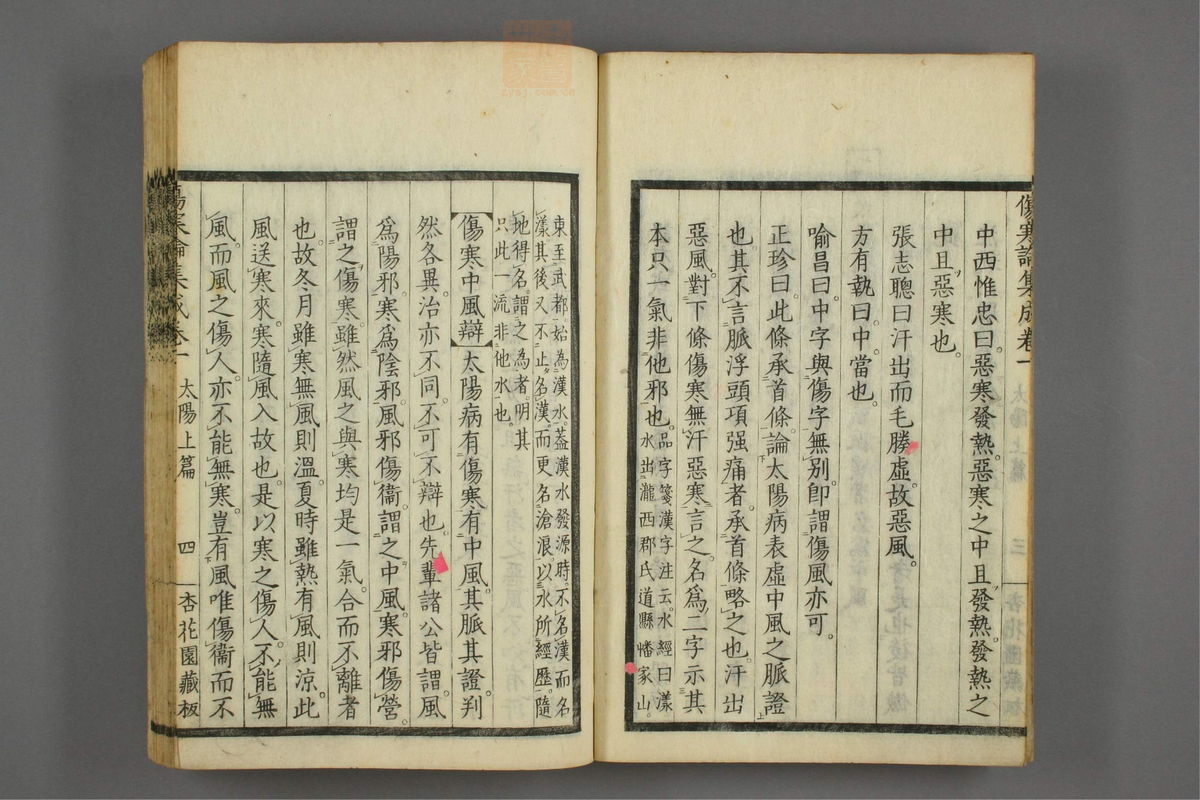 傷寒論集成卷一
中西惟忠曰。惡寒發熱。惡寒之中且發熱。發熱之
中且惡寒也。
張志聰曰汗出而毛腠虛。故惡風。
方有執曰。中。當也。
喻昌曰。中字與傷字無別。卽謂傷風亦可。
正珍曰。此條承首條。論太陽病表虛中風之脈證
也。其不言脈浮頭項强痛者。承首條略之也。汗出
惡風。對下條傷寒無汗惡寒言之。名爲二字示其
本只一氣非他邪也。品字箋漢字注云。水經曰漾
水出瀧西郡氏道縣嶓家山。
東至武都。始為漢水。蓋漢水發源時。不名漢而名
漾其後又不止名漢。而更名滄浪以水所經歷。隨
地得名。謂之為者。明其
只此一流非他水也。
傷寒中風辯 太陽病有傷寒有中風。其脈其證。判
然各異。治亦不同。不可不辯也。先輩諸公皆謂。風
爲陽邪。寒爲陰邪。風邪傷衞。謂之中風。寒邪傷營。
謂之傷寒。雖然風之與寒均是一氣。合而不離者
也。故冬月雖寒無風則溫。夏時雖熱有風則涼。此
風送寒來。寒隨風入故也。是以寒之傷人。不能無
風。而風之傷人。亦不能無寒。豈有風唯傷衞而不
傷寒論集成卷一
太陽上篇
四
杏花園藏板